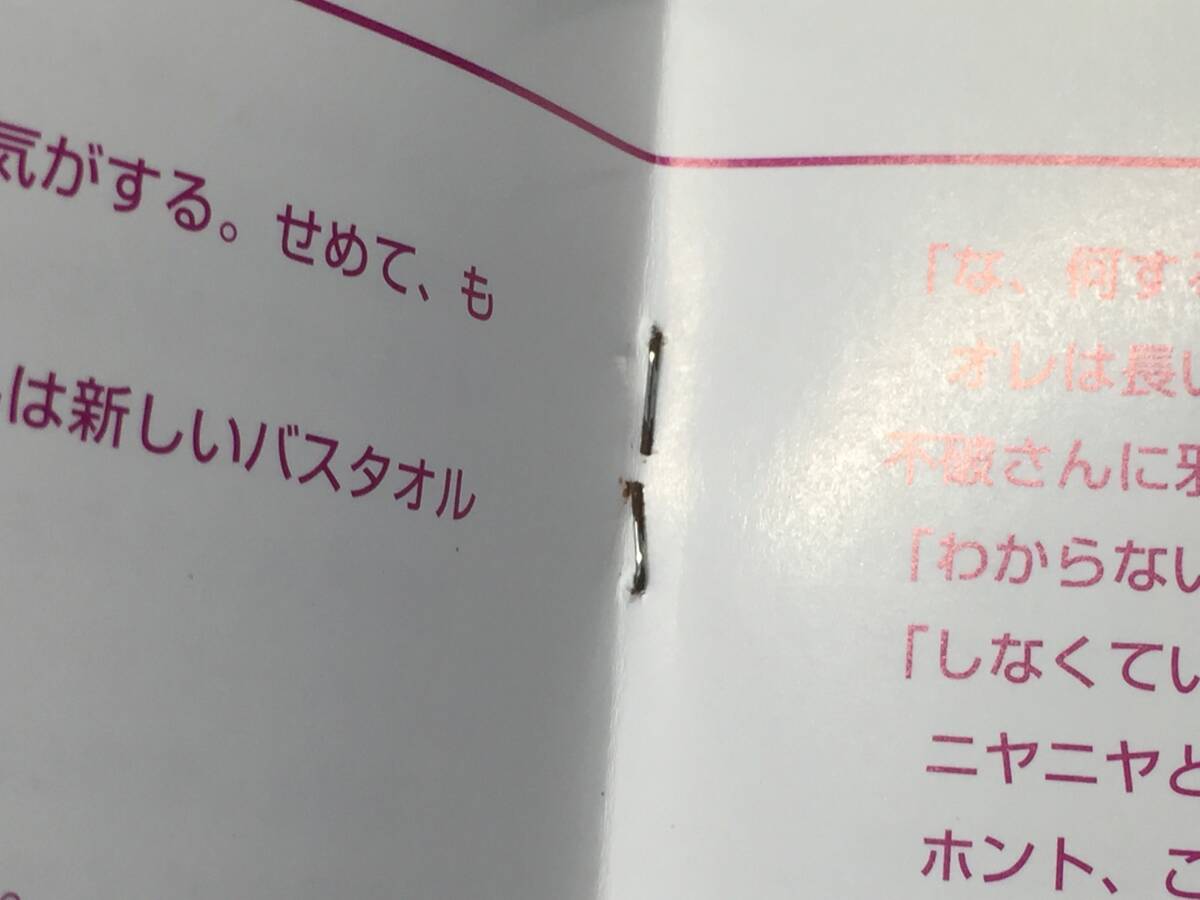 気がする。せめて、も
は新しいバスタオル
。
「な、何する
オレは長い
不破さんに邪
「わからない
「しなくてい
ニヤニヤと
ホント、こ